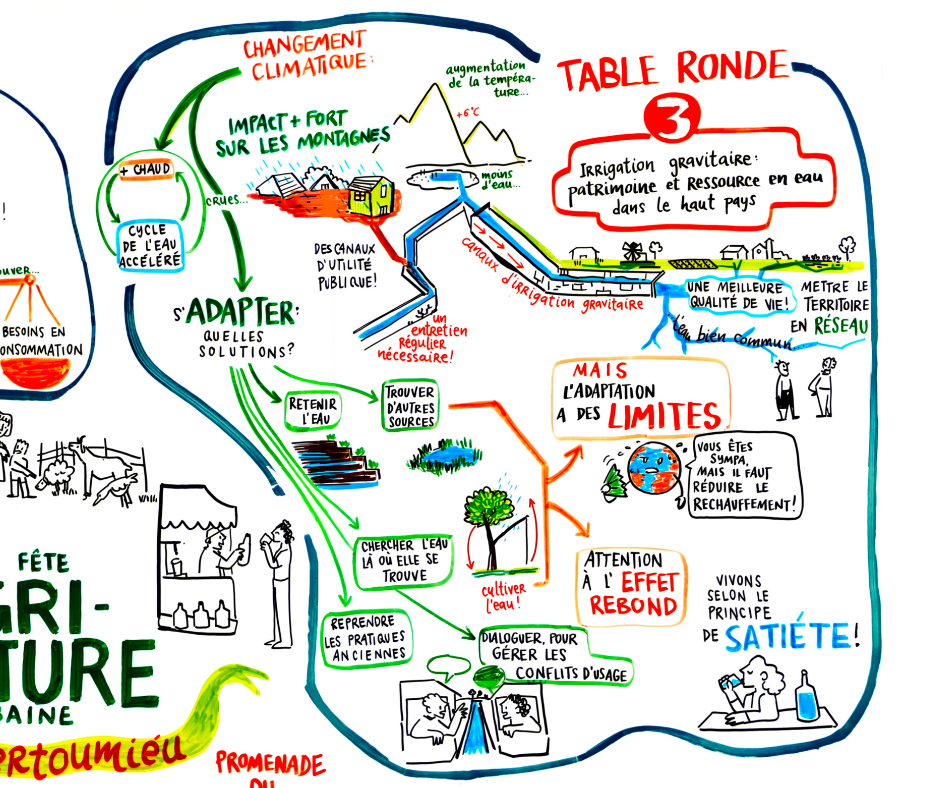 CHANGEMENT
CLIMATIQUE:
augmentation
de la tempéra-
ture...
+6°C
TABLE RONDE
3
Irrigation gravitaire:
patrimoine et ressource en eau
dans le haut pays
IMPACT + FORT
SUR LES MONTAGNES
+ CHAUD
CYCLE
DE L'EAU
ACCÉLÉRÉ
crues...
moins
d'eau...
DES CANAUX
D'UTILITÉ
PUBLIQUE!
canaux d'irrigation gravitaire
un
entretien
régulier
nécessaire!
UNE MEILLEURE
QUALITÉ DE VIE!
METTRE LE
TERRITOIRE
EN RÉSEAU
l'eau bien commun...
S'ADAPTER:
QUELLES
SOLUTIONS?
RETENIR
L'EAU
TROUVER
D'AUTRES
SOURCES
MAIS
L'ADAPTATION
A DES LIMITES
VOUS ÊTES
SYMPA,
MAIS IL FAUT
RÉDUIRE LE
RECHAUFFEMENT!
CHERCHER L'EAU
LÀ OÙ ELLE SE
TROUVE
cultiver
l'eau!
ATTENTION
À L'EFFET
REBOND
REPRENDRE
LES PRATIQUES
ANCIENNES
DIALOGUER, POUR
GÉRER LES
CONFLITS D'USAGE
VIVONS
SELON LE
PRINCIPE
DE SATIÉTE!
!
ouver...
BESOINS EN
ONSOMMATION
FÊTE
GRI-
TURE
BAINE
ertoumiéu
PROMENADE
DU